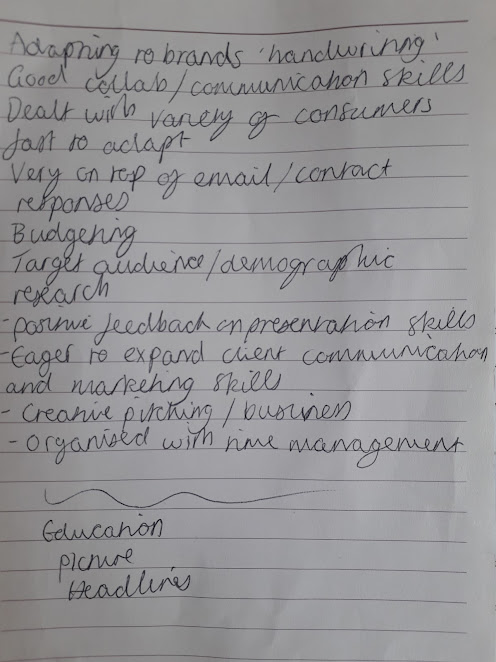 Adapting to brands 'handwriting'
Good collab/communication skills
Dealt with variety of consumers
fast to adapt
Very on top of email/contact
responses
Budgeting
Target audience/demographic
research
-positive feedback on presentation skills
-Eager to expand client communication
and marketing skills
- Creative pitching/business
- organised with time management
Education
picture
Headlines